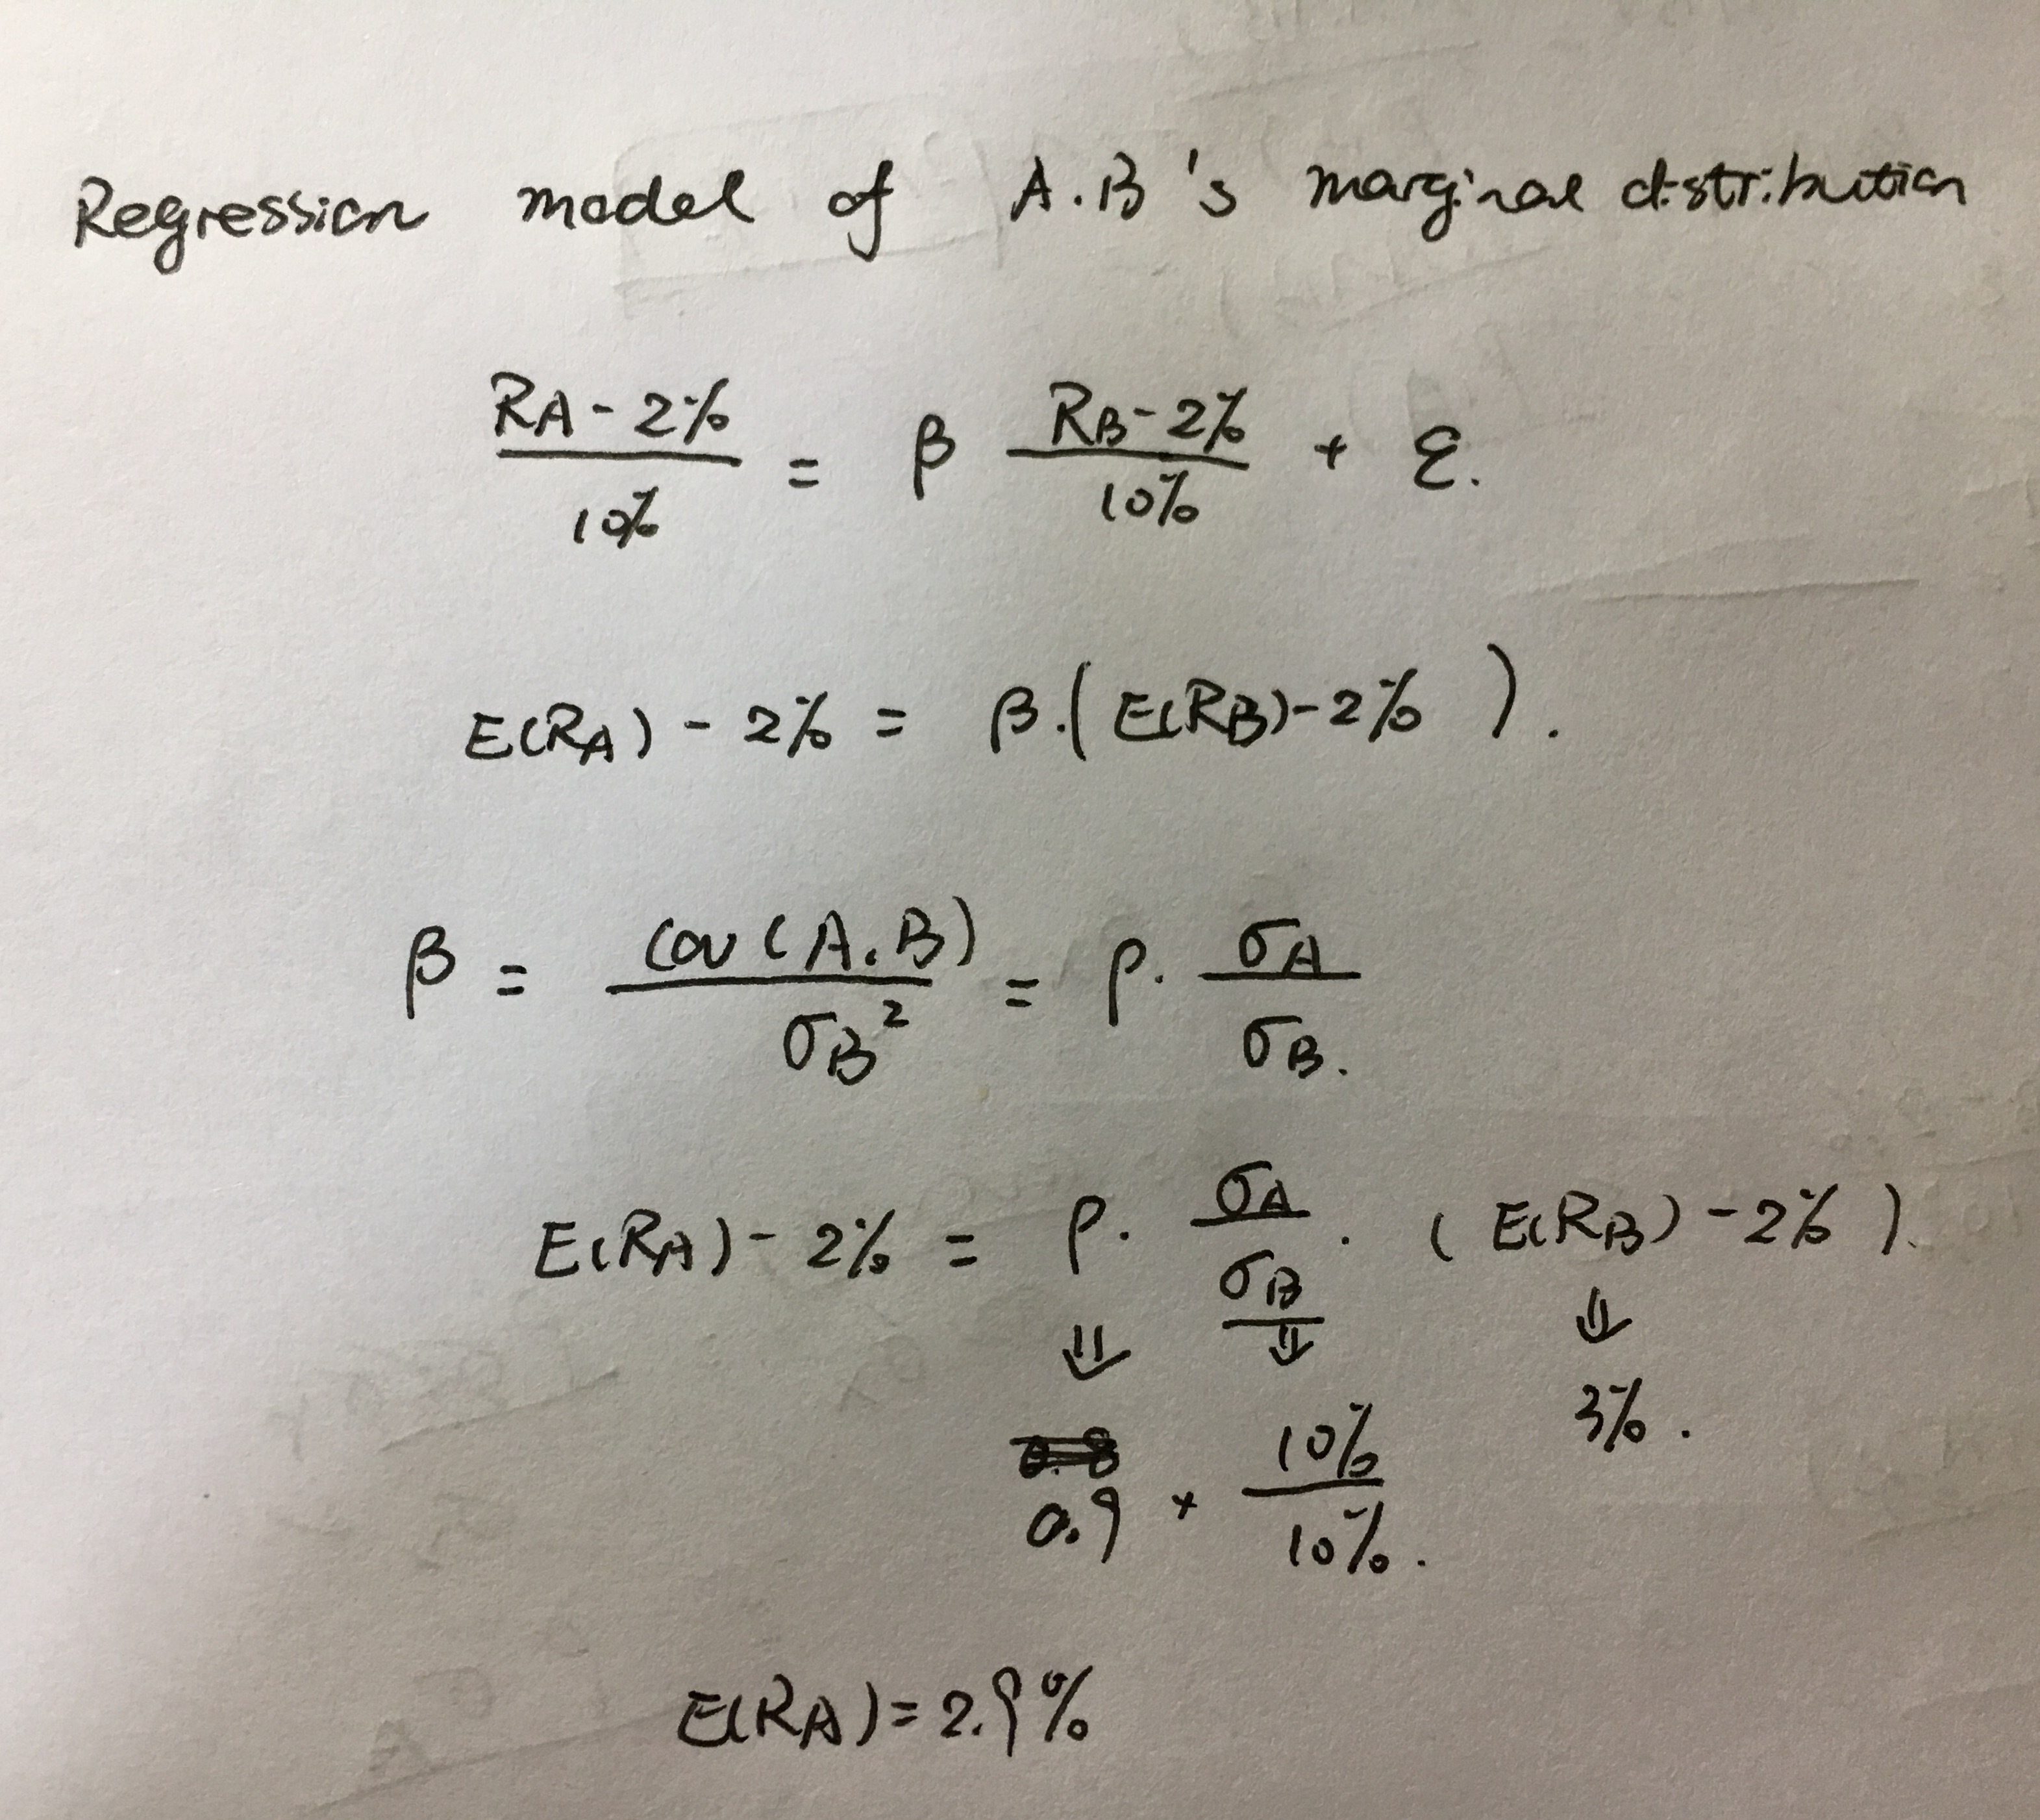 Regression model of A.B's marginal distribution
RA - 2% / 10% = β RB - 2% / 10% + ε.
E(RA) - 2% = β.( E(RB) - 2% ).
β = Cov (A.B) / σB² = ρ. σA / σB.
E(RA) - 2% = ρ. σA / σB . ( E(RB) - 2% ).
⇓ ⇓ ⇓
0.9 × 10% / 10%. 3%.
E(RA) = 2.9%